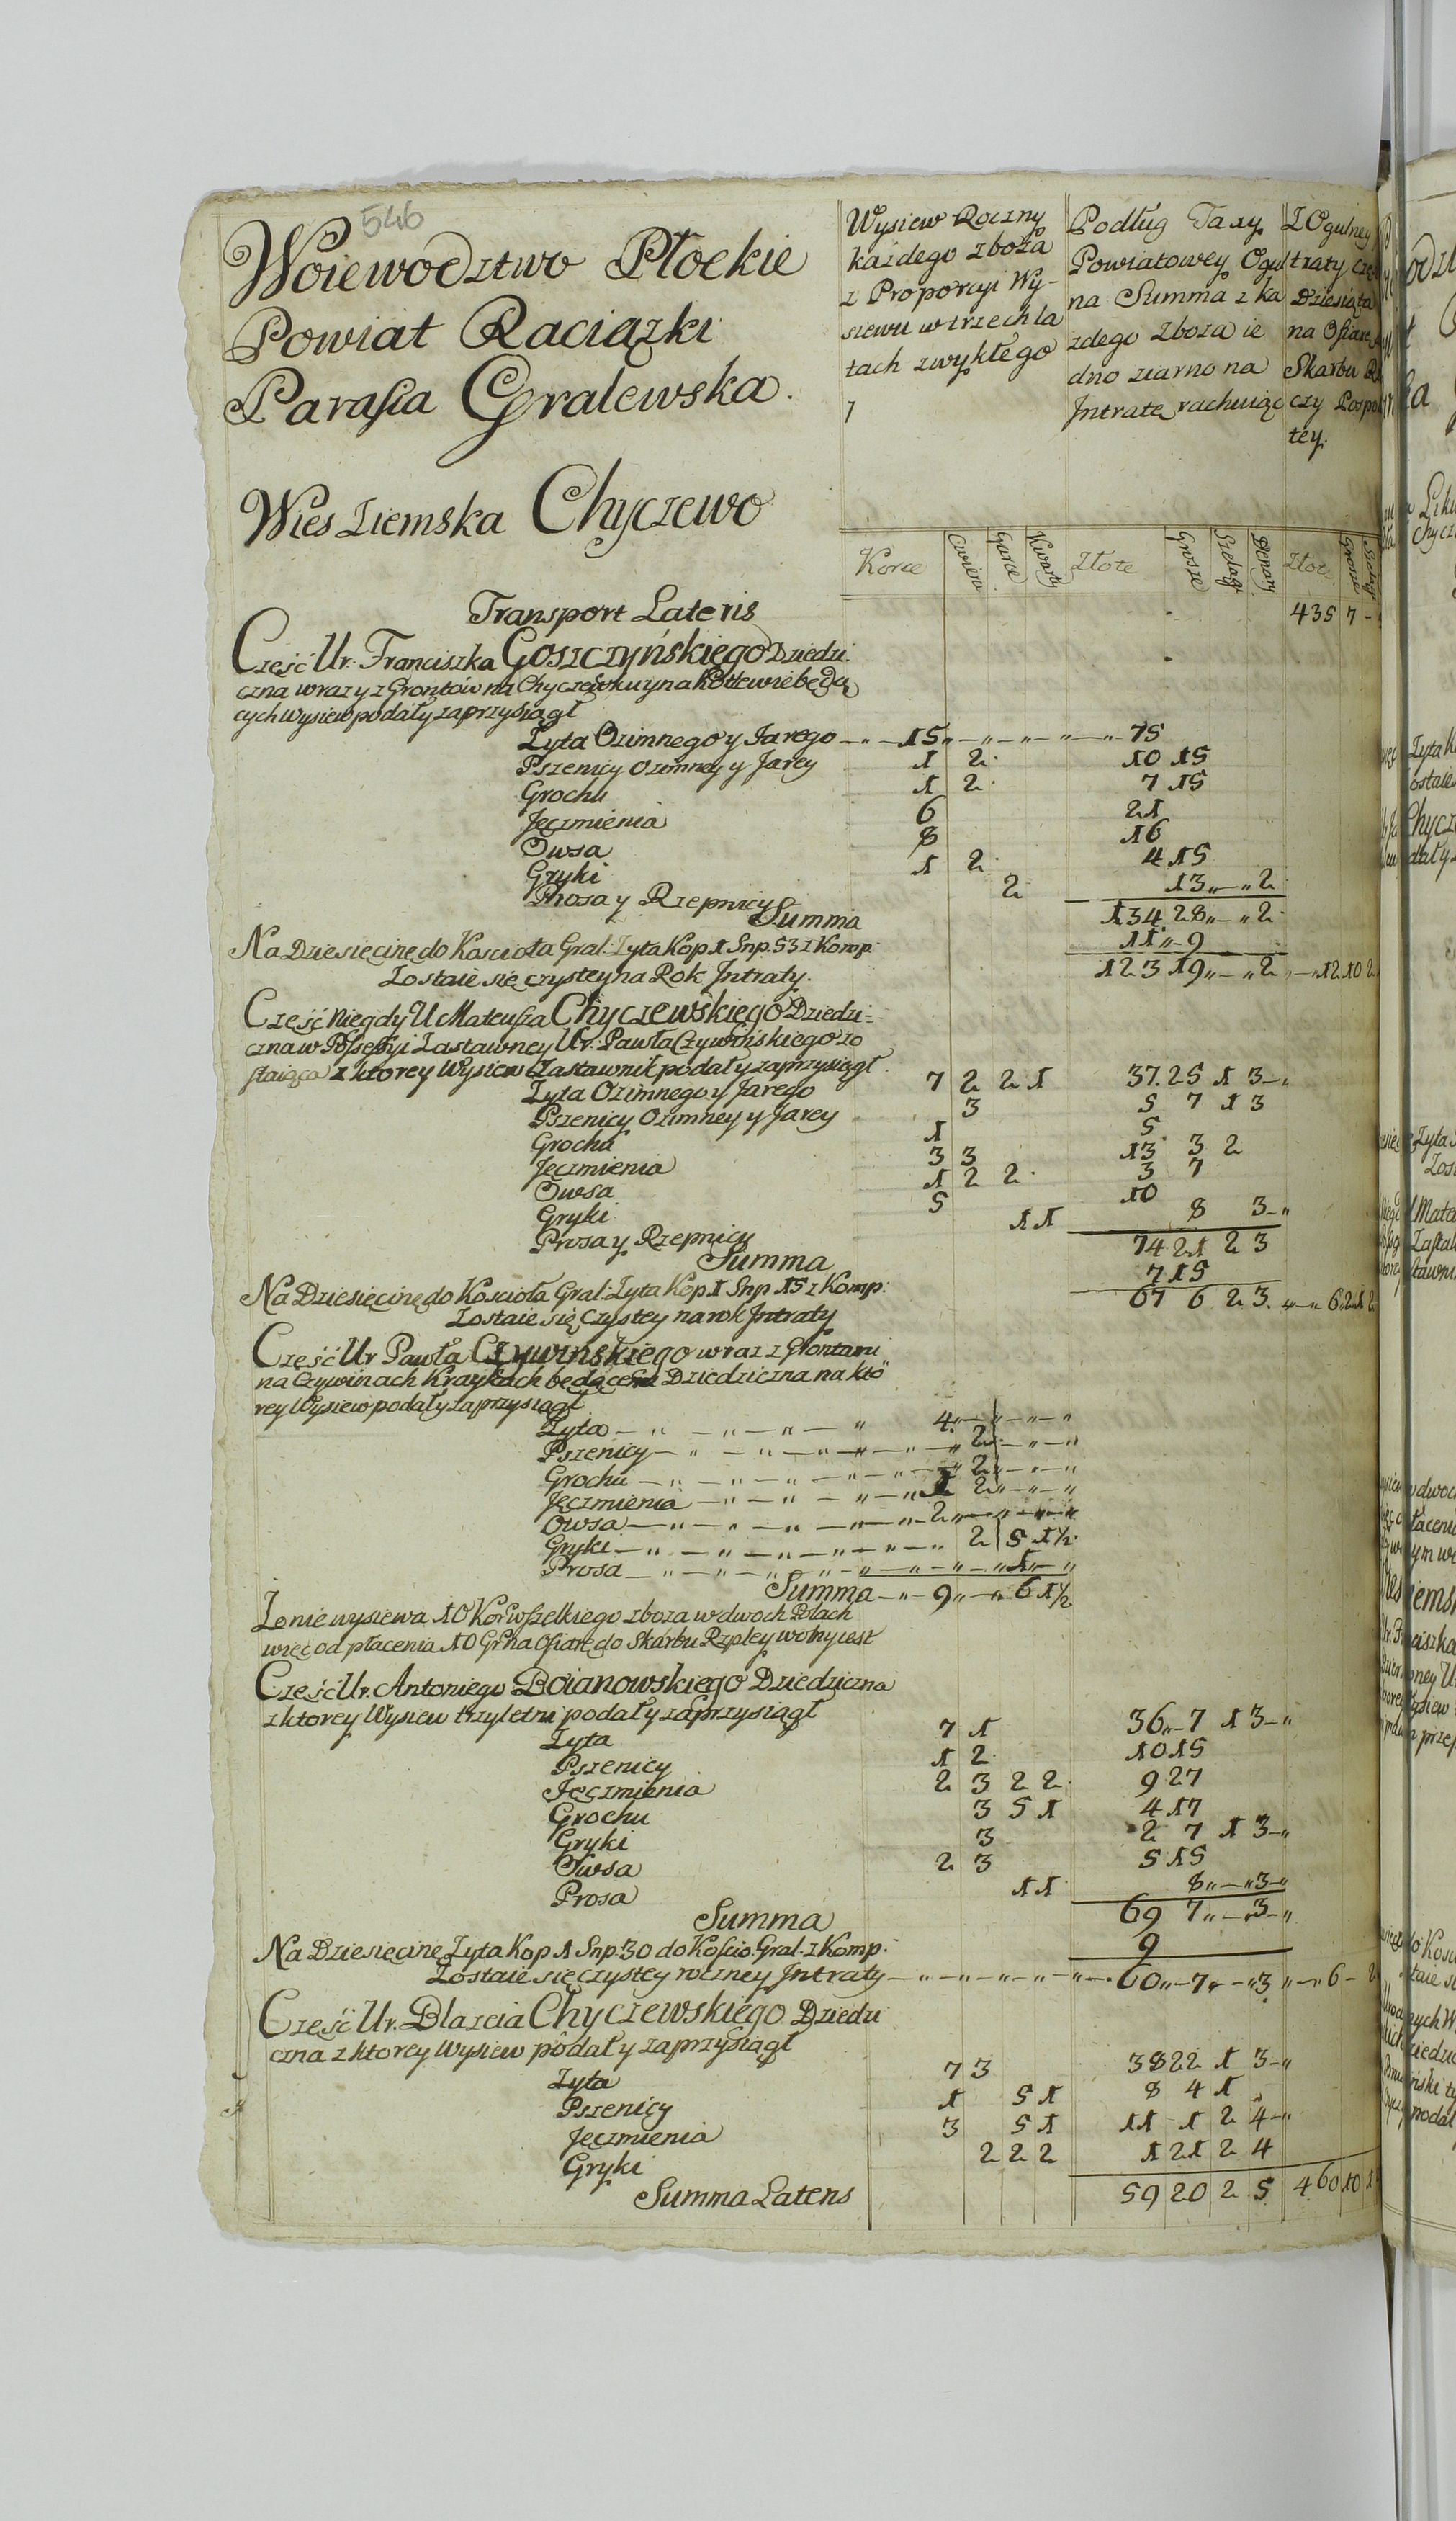 546
Woiewodztwo Płockie
Powiat Raciązki
Parafia Gralewska.
Wies Ziemska Chyczewo
Wysiew Roczny
kazdego zboza
z Proporcyi Wy-
siewu w trzech la
tach zwykłego
Podług Taxy
Powiatowey Ogul
na Summa z ka
zdego zboza ie
dno ziarno na
Jntratę rachuiąc
Z Ogulney
traty
Dziesiąta
na Ofiarę
Skarbu
czy Pospol
tey.
Korce Cwierci Garce Kwarty Złote Grosze Szelągi Denary Złote Grosze
Transport Lateris 435 7 -
Część Ur. Franciszka Goszczyńskiego Dziedzi:
czna wraz y z Grontów na Chyczewku y na Kotlewie będą
cych Wysiew podał y zaprzysiągł
Zyta Ozimnego y Jarego 15 75
Pszenicy Ozimney y Jarey 1 2 10 15
Grochu 1 2 7 15
Jęczmienia 6 21
Owsa 8 16
Gryki 1 2 4 15
Prosa y Rzepnicy 2 13 „ — „ 2
Summa 134 28 „ — „ 2
Na Dziesięcinę do Koscioła Gral: Zyta Kop. 1 Snp. 53 z Komp: 11 „ - 9
Zostaie się czystey na Rok Jntraty. 123 19 „ — „ 2 „ — „ 12 10 2
Część Niegdy U Mateusza Chyczewskiego Dziedzi-
czna w Possessyi Zastawney Ur: Pawła Czywińskiego zo
staiąca z ktorey Wysiew Zastawnik podał y zaprzysiągł
Zyta Ozimnego y Jarego 7 2 2 1 37. 25 1 3 - „
Pszenicy Ozimney y Jarey 3 5 7 1 3
Grochu 1 5
Jęczmienia 3 3 13 3 2
Owsa 1 2 2 3 7
Gryki 5 10
Prosa y Rzepnicy 1 1 8 3 - „
Summa 74 21 2 3
Na Dziesięcinę do Koscioła Gral: Zyta Kop. 1 Snp 15 z Komp: 7 15
Zostaie się Czystey na rok Jntraty 67 6 2 3. „ — „ 6 21 2
Część Ur Pawła Czywinskiego wraz z Grontami
na Czywinach Kraykach będącemi Dziedziczna na któ
rey Wysiew podał y zaprzysiągł
Zyta — „ — „ — „ — „ 4 „ — „ — „ — „
Pszenicy — „ — „ — „ — „ — „ 2 „ — „ — „
Grochu — „ — „ — „ — „ — „ 2 „ — „ — „
Jęczmienia — „ — „ — „ — „ 1 2 „ — „ — „
Owsa — „ — „ — „ — „ — „ 2 „ — „ — „ — „
Gryki — „ — „ — „ — „ — „ — „ 2 5 1½
Prosa — „ — „ — „ — „ — „ — „ — „ 1 „ — „
Summa — „ — 9 „ — „ 6 1½
Ze nie wysiewa 10 Kor wszelkiego zboza w dwoch Polach
więc od płacenia 10 Gr na Ofiarę do Skarbu Rzpley wolny iest
Część Ur. Antoniego Boianowskiego Dziedziczna
z ktorey Wysiew trzyletni podał y zaprzysiągł
Zyta 7 1 36 „ - 7 1 3 - „
Pszenicy 1 2 10 15
Jęczmienia 2 3 2 2 9 27
Grochu 3 5 1 4 17
Gryki 3 2 7 1 3 - „
Owsa 2 3 5 15
Prosa 1 1 8 „ — „ 3 - „
Summa 69 7 „ — „ 3 - „
Na Dziesięcinę Zyta Kop 1 Snp. 30 do Koscio. Gral. z Komp. 9
Zostaie się czystey roczney Jntraty — „ — „ — „ — „ — „ — 60 „ - 7 „ — „ 3 „ — „ 6 - 2
Część Ur. Błazeia Chyczewskiego Dziedzi
czna z ktorey Wysiew podał y zaprzysiągł
Zyta 7 3 38 22 1 3 - „
Pszenicy 1 5 1 8 4 1
Jęczmienia 3 5 1 11 1 2 4 - „
Gryki 2 2 2 1 21 2 4
Summa Lateris 59 20 2 5 460 10 1